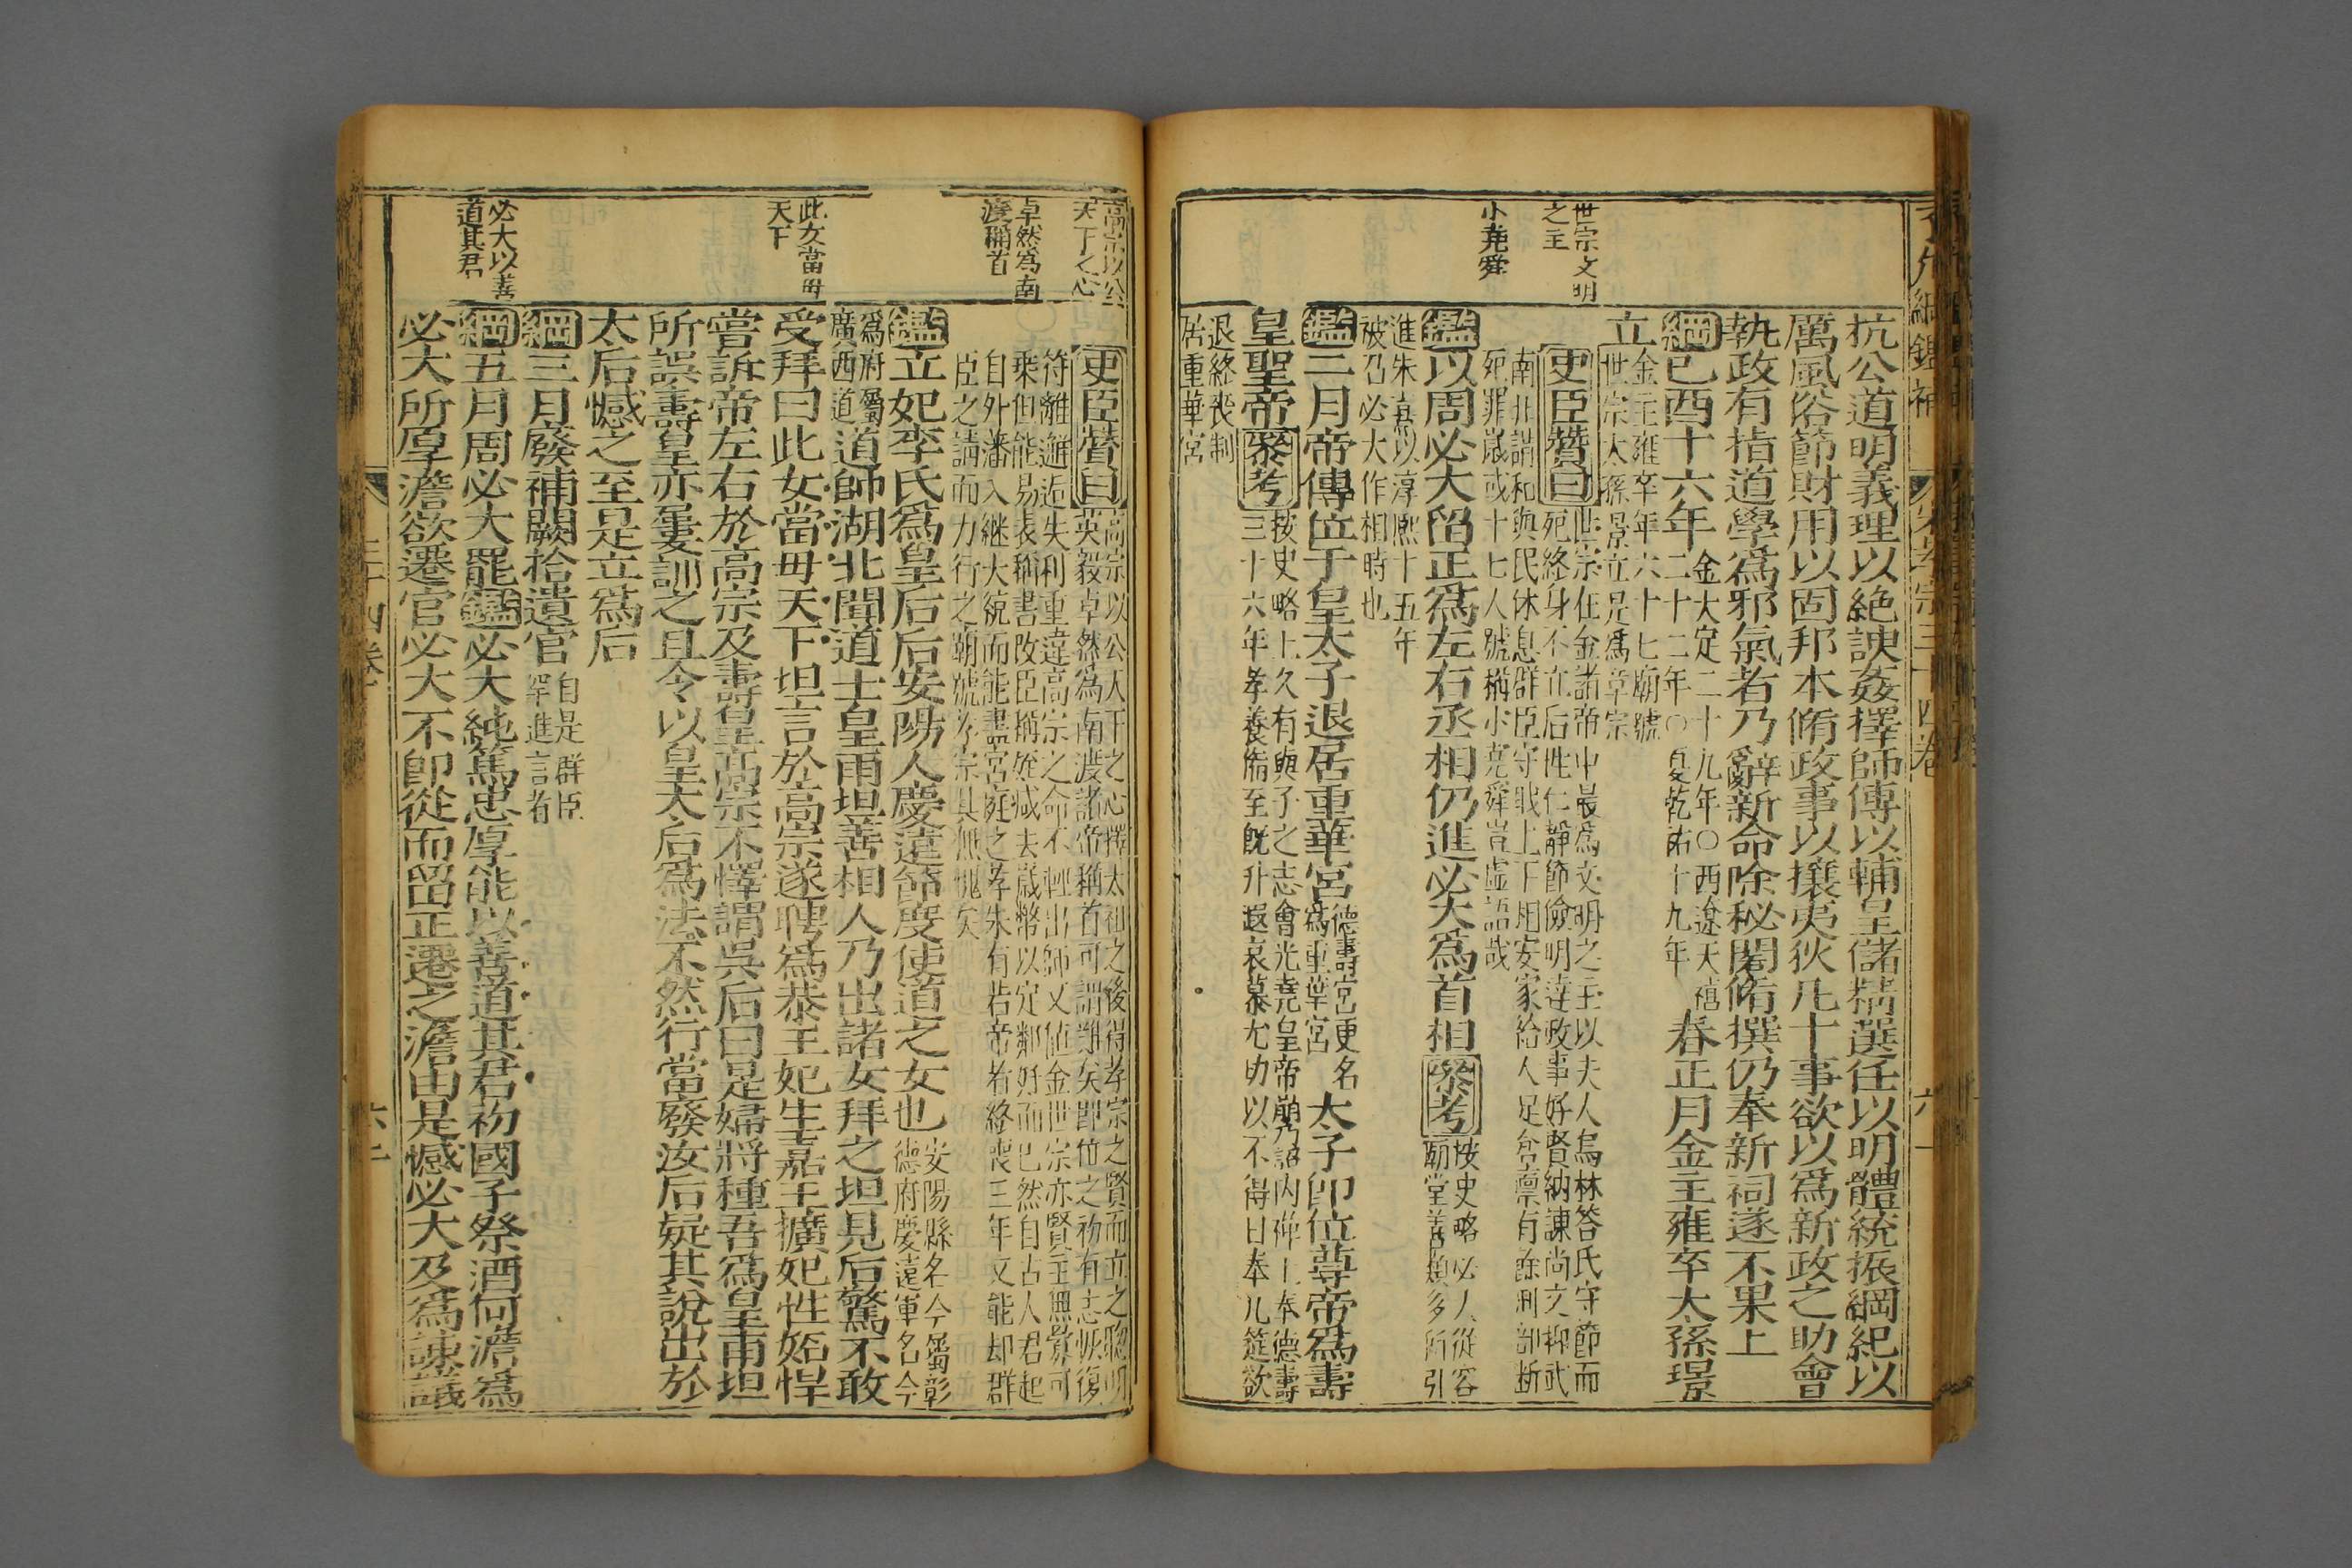 世宗文明
之主
小堯舜
抗公道明義理以絶諛姦擇師傅以輔皇儲精選任以明體統振綱紀以
厲風俗節財用以固邦本脩政事以攘夷狄凡十事欲以爲新政之助會
執政有指道學爲邪氣者乃辭新命除秘閣脩撰仍奉新祠遂不果上
綱已酉十六年
金大定二十九年○西遼天禧
二十二年○夏乾祐十九年
春正月金主雍卒太孫璟
立
金主雍卒年六十七廟號
世宗太孫景立是爲章宗
史臣贊曰
世宗在金諸帝中最爲文明之主以夫人烏林答氏守節而
死終身不立后性仁靜節儉明達政事好賢納諫尚文抑武
南北講和與民休息群臣守職上下相安家給人足倉廩有餘刑部断
死罪歲或十七人號稱小堯舜豈虛語哉
鑑以周必大留正爲左右丞相仍進必大爲首相
參考
按史略必大從容
廟堂善類多所引
進朱熹以淳熙十五年
被召必大作相時也
鑑二月帝傳位于皇太子退居重華宮
德壽宮更名
爲重華宮
太子卽位尊帝爲壽
皇聖帝
參考
按史略上久有與子之志會光堯皇帝崩乃詔内禅上奉德壽
三十六年孝養備至旣升遐哀慕尤切以不得日奉几筵欲
退終喪制
居重華宮
高宗以公
天下之心
卓然爲南
渡稱首
此女當毋
天下
必大以善
道其君
史臣贊曰
高宗以公天下之心擇太祖之後得孝宗之賢而立之聰明
英毅卓然為南渡諸帝稱首可謂難矣卽位之初有志恢復
符離邂逅失利重違高宗之命不輕出師又值金世宗亦賢主無釁可
乗但能易表稱書改臣稱姪减去歲幣以定鄰好而已然自古人君起
自外藩入継大統而能盡宮庭之孝未有若帝者終喪三年又能却群
臣之請而力行之廟號孝宗其無愧矣
鑑立妃李氏爲皇后后安陽人慶遠節度使道之女也
安陽縣名今屬彰
德府慶遠軍名今
爲府屬
廣西道
道師湖北聞道士皇甫坦善相人乃出諸女拜之坦見后驚不敢
受拜曰此女當毋天下坦言於高宗遂聘爲恭王妃生嘉王擴妃性妬悍
嘗訴帝左右於高宗及壽皇高宗不懌謂吳后曰是婦將種吾爲皇甫坦
所誤壽皇亦屢訓之且令以皇太后爲法不然行當廢汝后疑其說出於
太后憾之至是立爲后
綱三月廢補闕拾遺官
自是群臣
罕進言者
綱五月周必大罷鑑必大純篤忠厚能以善道其君初國子祭酒何澹爲
必大所厚澹欲遷官必大不卽從而留正遷之澹由是憾必大及爲諫議